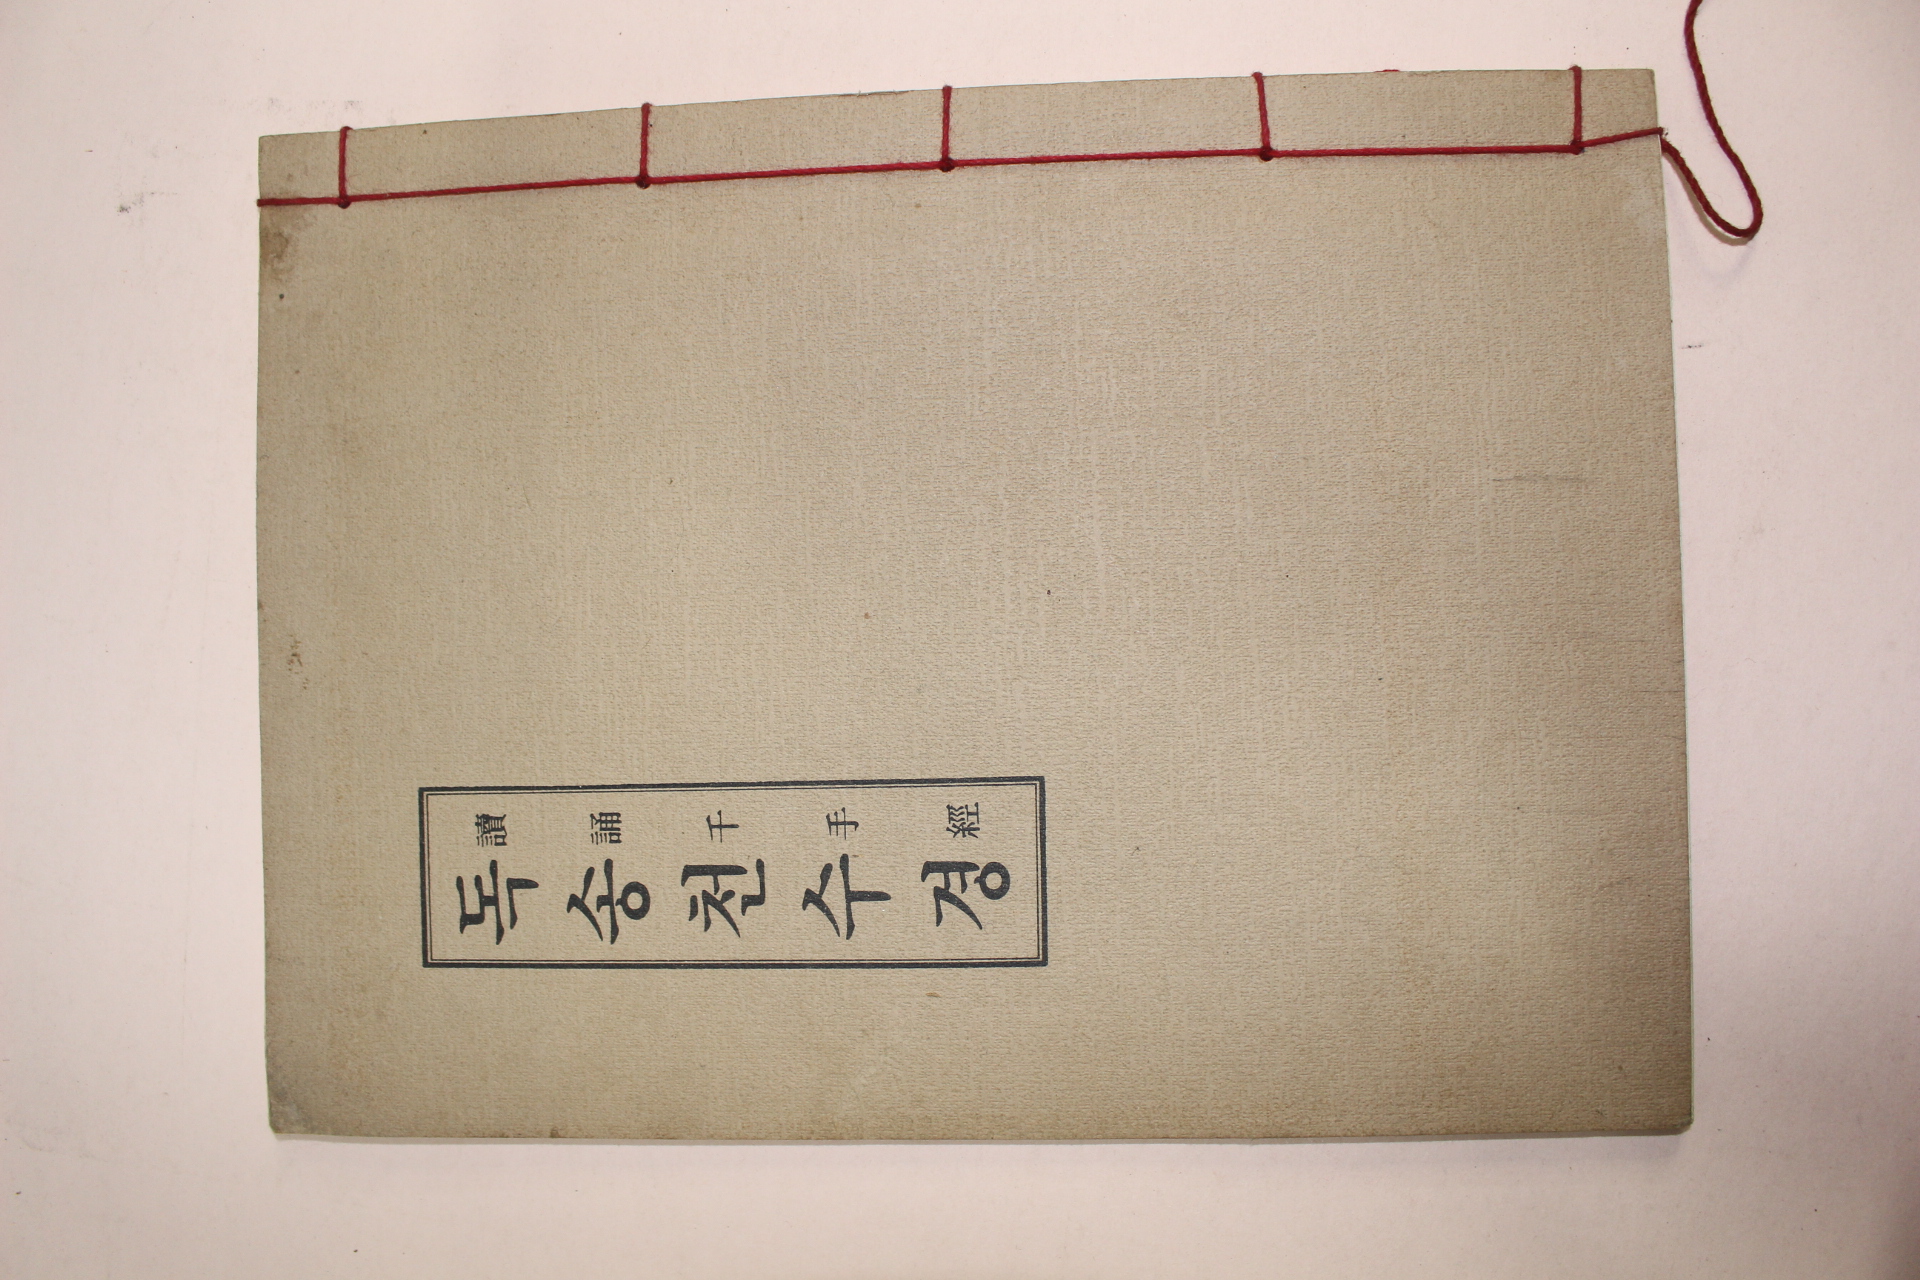 독송천수경
讀誦千手經